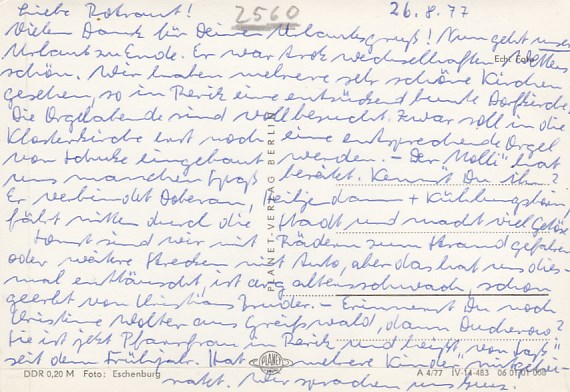 Liebe Rotraut! 2560 26.8.77
Vielen Dank für Deine Urlaubsgruß! Nun geht unser
Echt Foto
Urlaub zu Ende. Er war trotz wechselhaften Wetters
schön. Wir haben mehrere sehr schöne Kirchen
gesehen, so in Rerik eine entzückend bunte Dorfkirche.
Die Orgelabende sind voll besucht. Zwar soll in die
Klosterkirche erst noch eine entsprechende Orgel
von Schuke eingebaut werden. – Der "Molli" hat
uns manchen Spaß bereitet. Kennst Du ihn?
Er verbindet Doberan, Heiligendamm + Kühlungsborn
fährt mitten durch die Stadt und macht viel Getöse
Sonst sind wir mit Rädern zum Strand gefahren
oder weitere Strecken mit Auto, aber das hat uns dies-
mal enttäuscht, ist arg altersschwach, schon
geerbt von Christians Bruder. – Erinnerst Du noch
Christine Wolter aus Greifswald, dann Ducherow?
Sie ist jetzt Pfarrfrau in Rerik und heißt "von Saß"
seit dem Frühjahr. Hat mehrere Kinder
Wir sprachen uns kurz
PLANET-VERLAG BERLIN
PLANET
DDR 0,20 M Foto: Eschenburg
A 4/77 IV-14-483 06 01 01 008